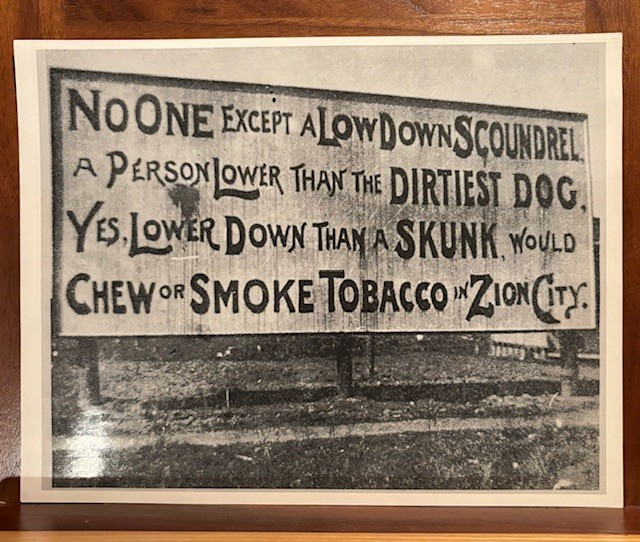 No One Except A Low Down Scoundrel,
A Person Lower Than The Dirtiest Dog,
Yes, Lower Down Than A Skunk, Would
Chew or Smoke Tobacco in Zion City.